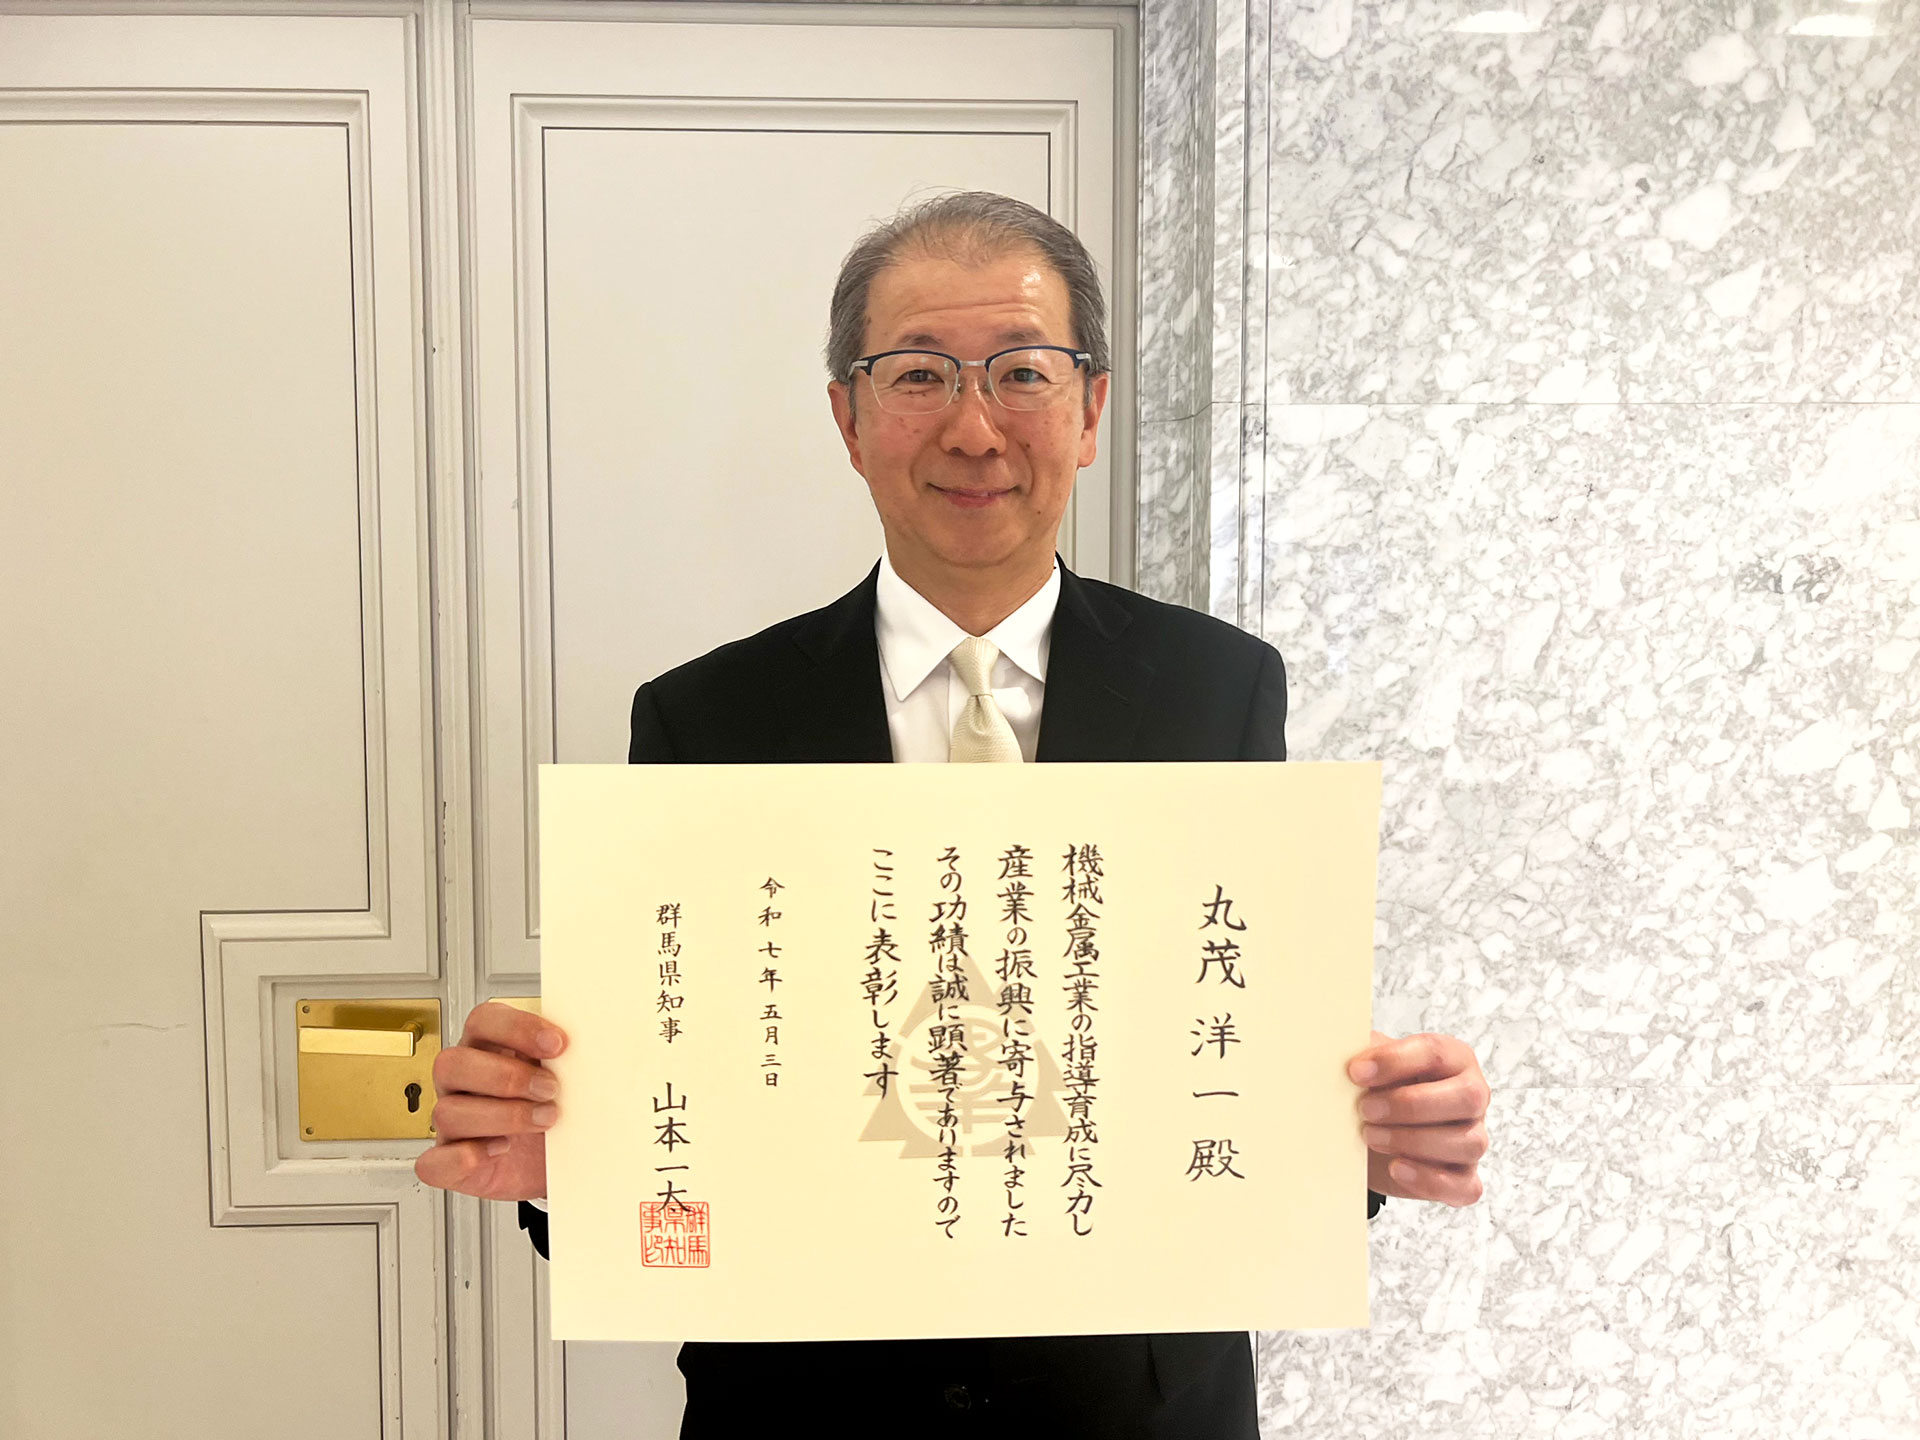 丸茂洋一殿
機械金属工業の指導育成に尽力し
産業の振興に寄与されました
その功績は誠に顕著でありますので
ここに表彰します
令和七年五月三日
群馬県知事 山本一太
群馬県知事印